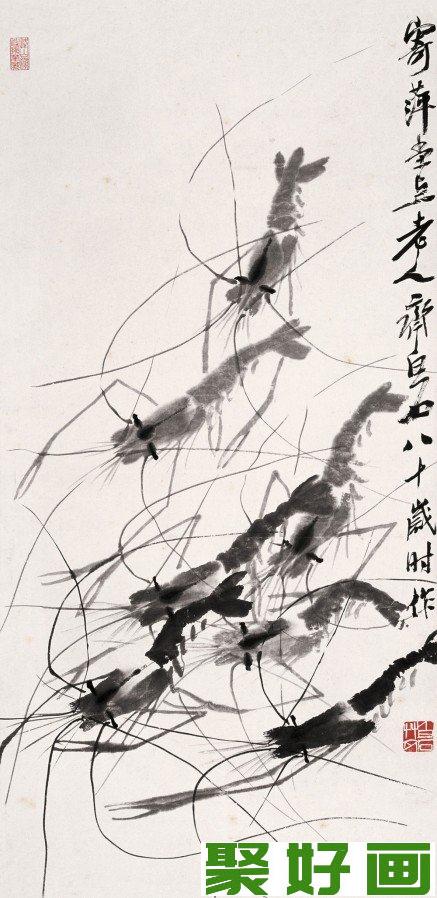 寄萍堂上老人齊白石八十歲时作
聚好画